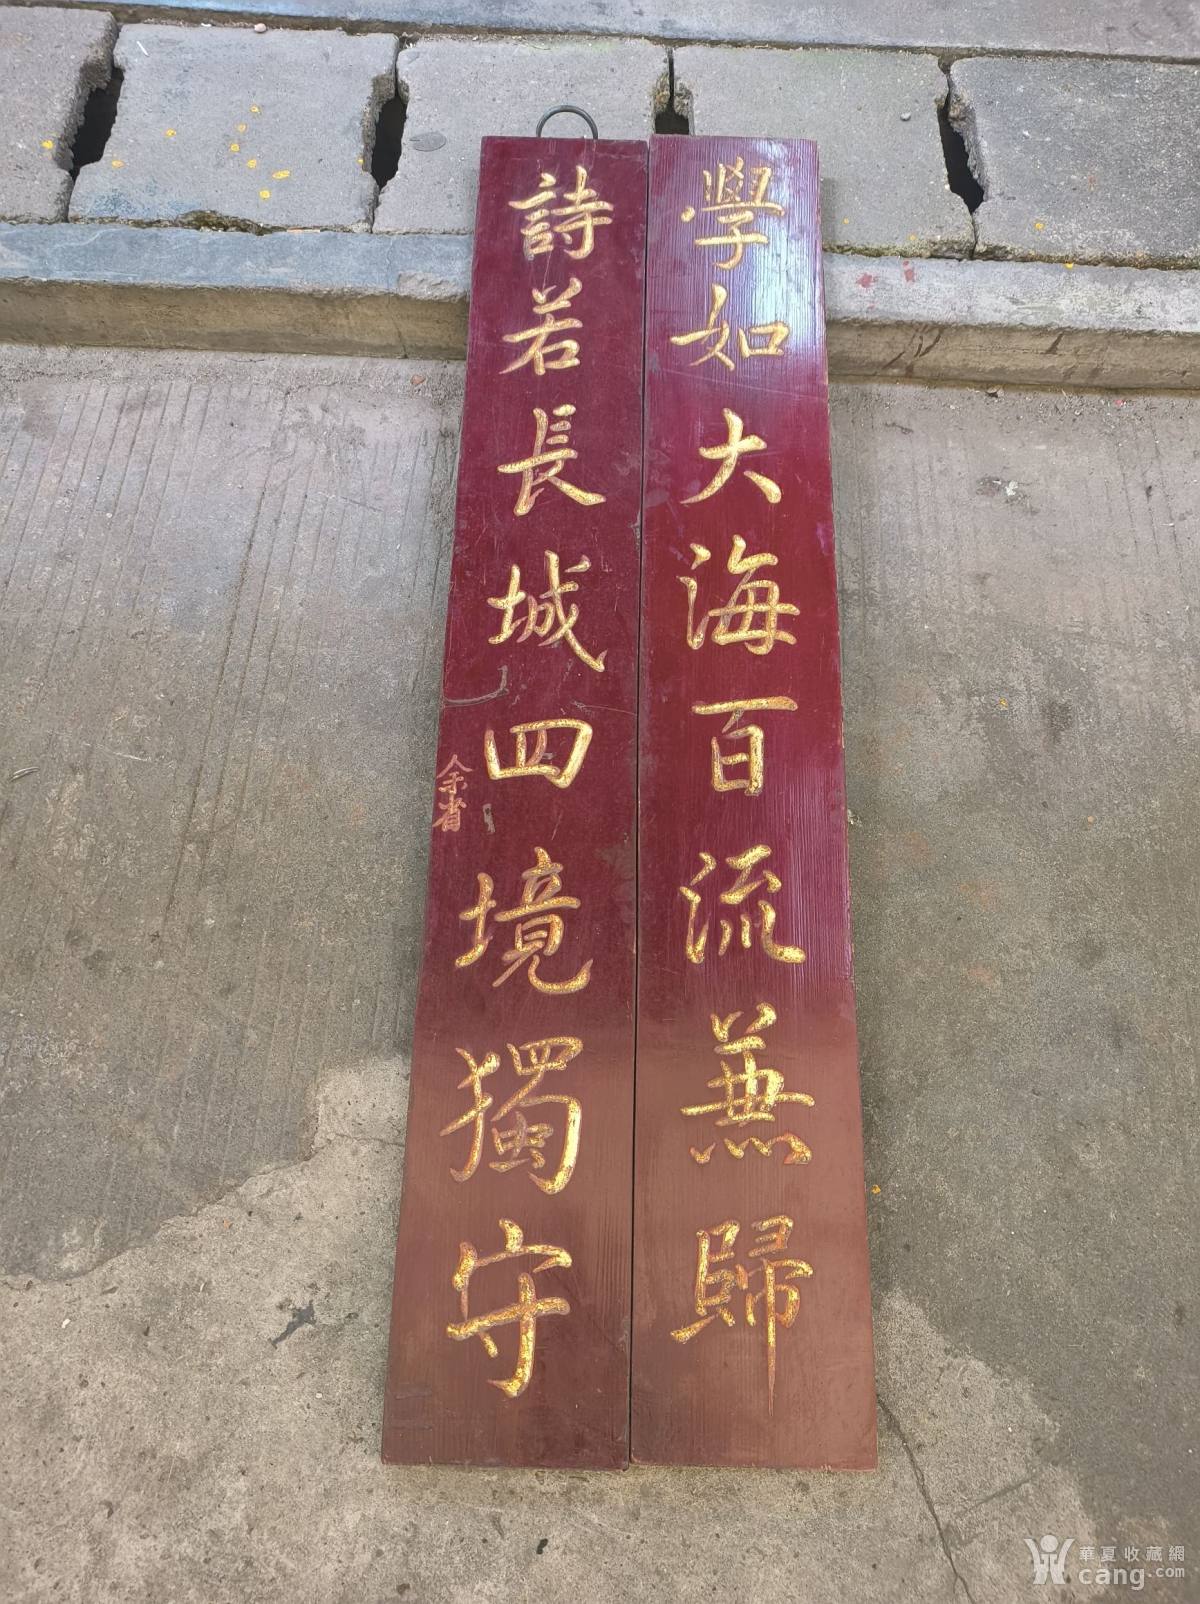 學如大海百流兼歸
詩若長城四境獨守
余省
華夏收藏網
cang.com